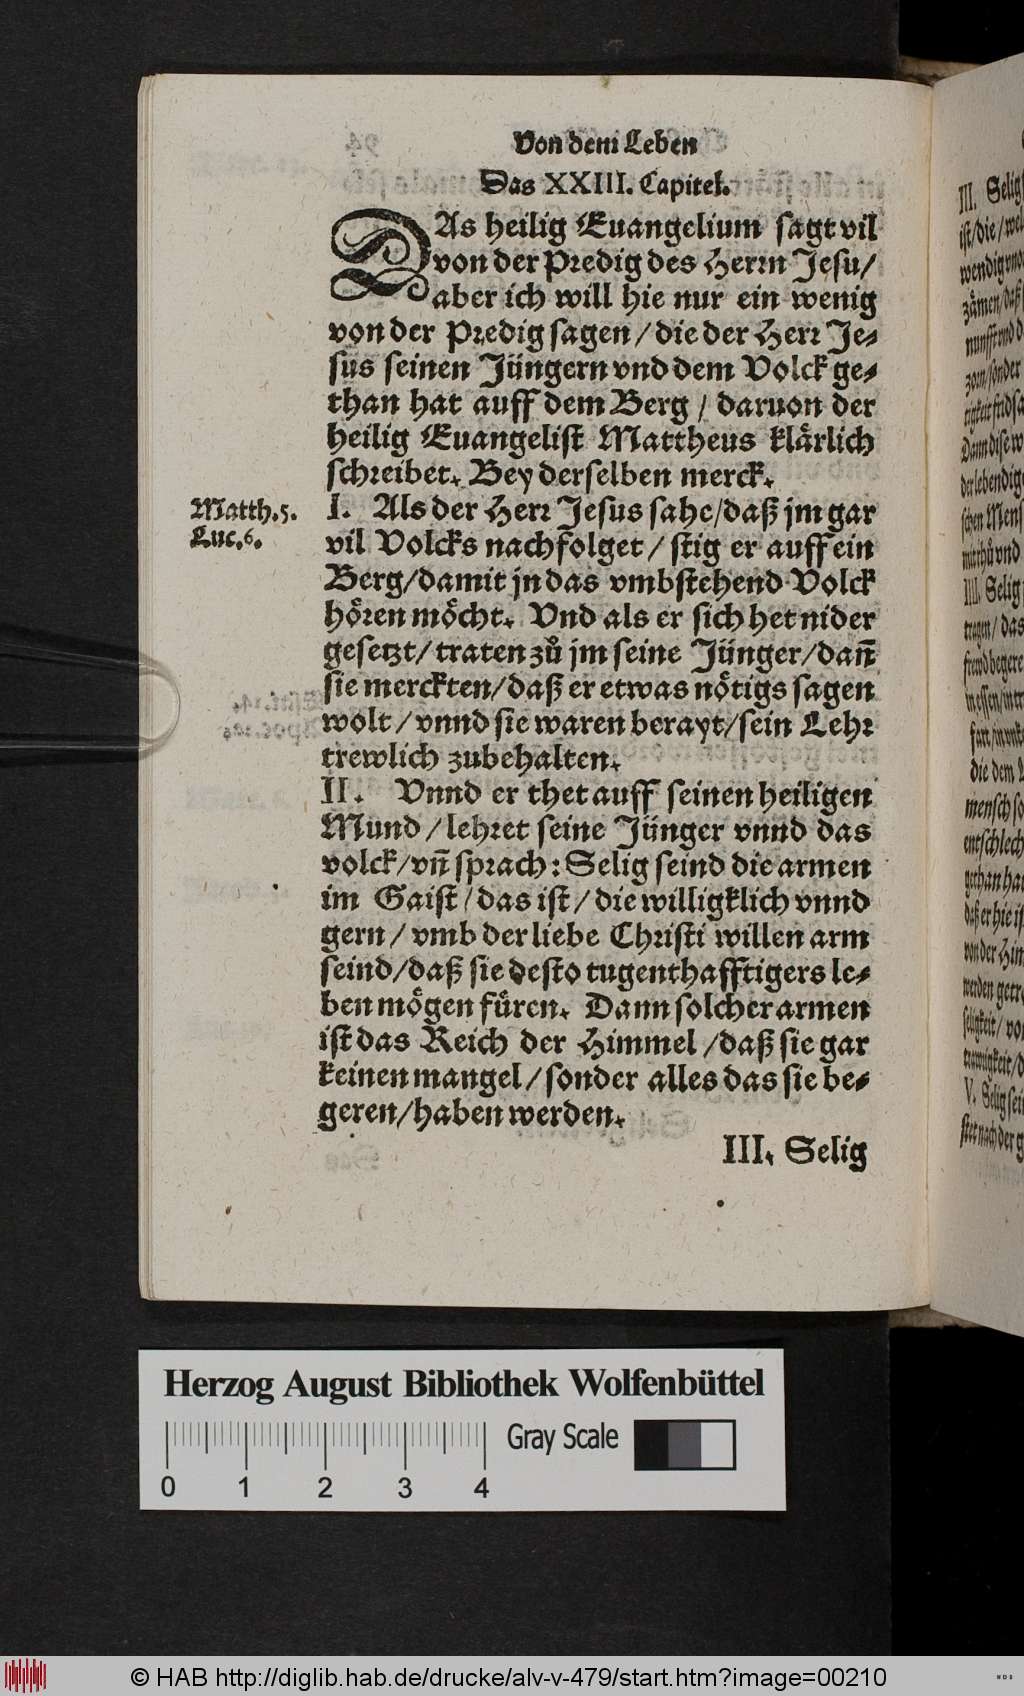 Von dem Leben
Das XXIII. Capitel.
DAs heilig Euangelium sagt vil
von der Predig des Herrn Jesu/
aber ich will hie nur ein wenig
von der Predig sagen/die der Herr Je-
sus seinen Jüngern vnd dem Volck ge-
than hat auff dem Berg/ daruon der
heilig Euangelist Mattheus klärlich
schreibet. Bey derselben merck.
Matth.5.
Luc.6.
I. Als der Herr Jesus sahe/daß jm gar
vil Volcks nachfolget/ stig er auff ein
Berg/damit jn das vmbstehend Volck
hören möcht. Vnd als er sich het nider
gesetzt/traten zů jm seine Jünger/dañ
sie merckten/daß er etwas nötigs sagen
wolt/vnnd sie waren berayt/sein Lehr
trewlich zubehalten.
II. Vnnd er thet auff seinen heiligen
Mund/lehret seine Jünger vnnd das
volck/vñ sprach: Selig seind die armen
im Gaist/das ist/die willigklich vnnd
gern/vmb der liebe Christi willen arm
seind/daß sie desto tugenthafftigers le-
ben mögen füren. Dann solcher armen
ist das Reich der Himmel/daß sie gar
keinen mangel/sonder alles das sie be-
geren/haben werden.
III. Selig
III. Selig
ist/die/
Herzog August Bibliothek Wolfenbüttel
Gray Scale
0 1 2 3 4
© HAB http://diglib.hab.de/drucke/alv-v-479/start.htm?image=00210